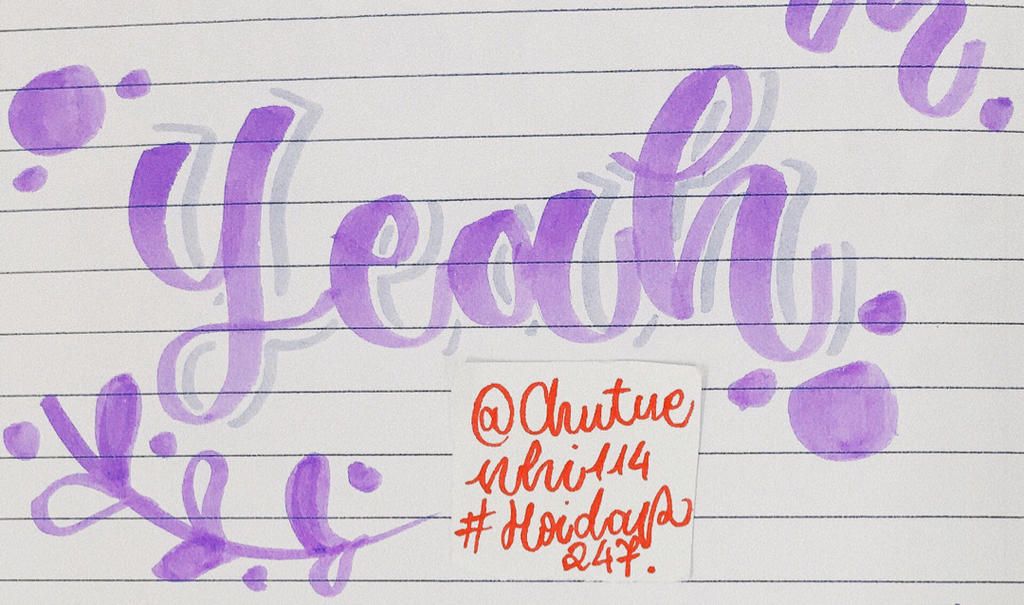 Yeah
@Chutue
nhi114
#Hoidap
247.